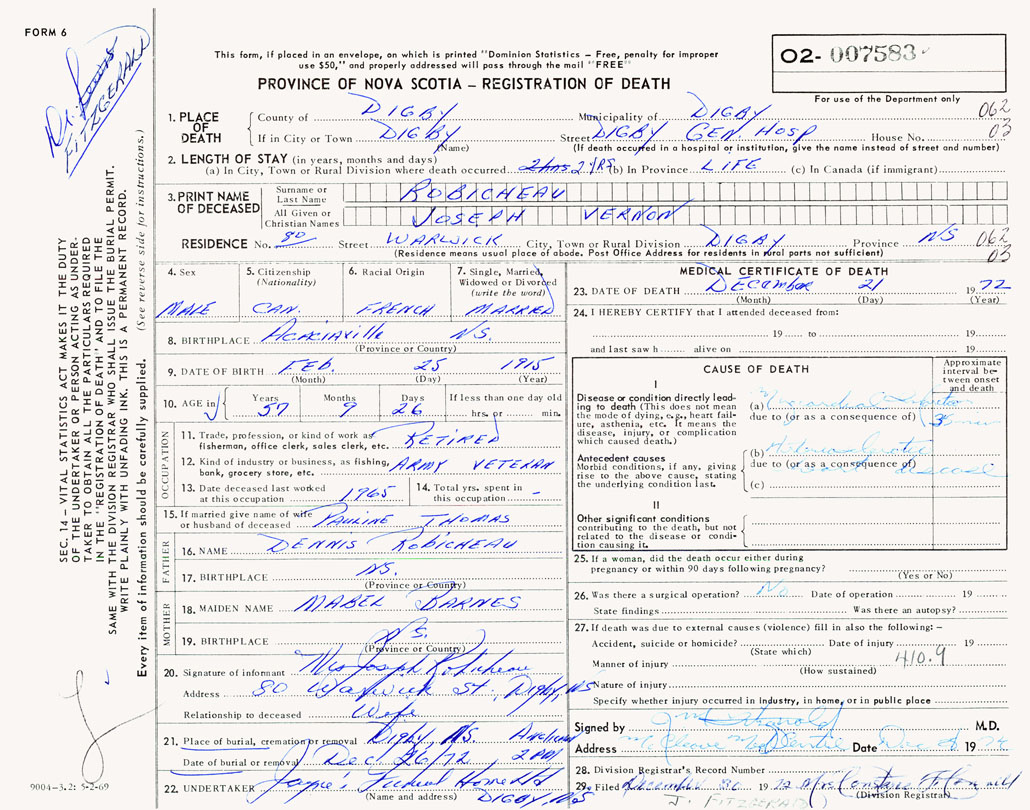 FORM 6
Dr. Lewis
FITZGERALD
This form, if placed in an envelope, on which is printed "Dominion Statistics – Free, penalty for improper
use $50," and properly addressed will pass through the mail "FREE"
PROVINCE OF NOVA SCOTIA – REGISTRATION OF DEATH
02- 007583
For use of the Department only
1. PLACE OF DEATH
County of DIGBY Municipality of DIGBY 062
If in City or Town DIGBY Street DIGBY GEN. HOSP House No. 03
(Name) (If death occurred in a hospital or institution, give the name instead of street and number)
2. LENGTH OF STAY (in years, months and days)
(a) In City, Town or Rural Division where death occurred 2 YRS (b) In Province LIFE (c) In Canada (if immigrant)
3. PRINT NAME OF DECEASED
Surname or Last Name ROBICHEAU
All Given or Christian Names JOSEPH VERNON
RESIDENCE No. 80 Street WARWICK City, Town or Rural Division DIGBY Province NS 062
(Residence means usual place of abode. Post Office Address for residents in rural parts not sufficient) 03
4. Sex
MALE
5. Citizenship
(Nationality)
CAN.
6. Racial Origin
FRENCH
7. Single, Married,
Widowed or Divorced
(write the word)
MARRIED
8. BIRTHPLACE Acaciaville N.S.
(Province or Country)
9. DATE OF BIRTH FEB. 25 1915
(Month) (Day) (Year)
10. AGE in Years 57 Months 9 Days 26 If less than one day old
hrs. or min.
OCCUPATION
11. Trade, profession, or kind of work as
fisherman, office clerk, sales clerk, etc. RETIRED
12. Kind of industry or business, as fishing,
bank, grocery store, etc. ARMY VETERAN
13. Date deceased last worked
at this occupation 1965
14. Total yrs. spent in
this occupation -
15. If married give name of wife
or husband of deceased PAULINE THOMAS
FATHER
16. NAME DENNIS ROBICHEAU
17. BIRTHPLACE NS.
(Province or Country)
MOTHER
18. MAIDEN NAME MABEL BARNES
19. BIRTHPLACE N.S.
(Province or Country)
20. Signature of informant Mrs Joseph Robicheau
Address 80 Warwick St., Digby, NS
Relationship to deceased Wife
21. Place of burial, cremation or removal Digby, N.S. Anglican
Date of burial or removal Dec 26/72 2 PM
22. UNDERTAKER Funeral Home Ltd
(Name and address) DIGBY, NS
MEDICAL CERTIFICATE OF DEATH
23. DATE OF DEATH DECEMBER 21 1972
(Month) (Day) (Year)
24. I HEREBY CERTIFY that I attended deceased from:
19 to 19
and last saw h alive on 19
CAUSE OF DEATH
Approximate
interval be-
tween onset
and death
I
Disease or condition directly lead-
ing to death (This does not mean
the mode of dying, e.g., heart fail-
ure, asthenia, etc. It means the
disease, injury, or complication
which caused death.)
(a) Myocardial Infarction
due to (or as a consequence of)
Antecedent causes
Morbid conditions, if any, giving
rise to the above cause, stating
the underlying condition last.
(b)
due to (or as a consequence of)
disease
(c)
II
Other significant conditions
contributing to the death, but not
related to the disease or condi-
tion causing it.
25. If a woman, did the death occur either during
pregnancy or within 90 days following pregnancy?
(Yes or No)
26. Was there a surgical operation? No Date of operation 19
State findings Was there an autopsy?
27. If death was due to external causes (violence) fill in also the following: –
Accident, suicide or homicide? Date of injury 19
(State which)
Manner of injury 410.9
(How sustained)
Nature of injury
Specify whether injury occurred in industry, in home, or in public place
Signed by M.D.
Address Date Dec 19
28. Division Registrar's Record Number
29. Filed December 26 1972
J. FITZGERALD (Division Registrar)
SEC. 14 – VITAL STATISTICS ACT MAKES IT THE DUTY
OF THE UNDERTAKER OR PERSON ACTING AS UNDER-
TAKER TO OBTAIN ALL THE PARTICULARS REQUIRED
IN THE "REGISTRATION OF DEATH" AND TO FILE THE
SAME WITH THE DIVISION REGISTRAR WHO SHALL ISSUE THE BURIAL PERMIT.
WRITE PLAINLY WITH UNFADING INK. THIS IS A PERMANENT RECORD.
Every item of information should be carefully supplied. (See reverse side for instructions.)
9004-3.2: 5-2-69